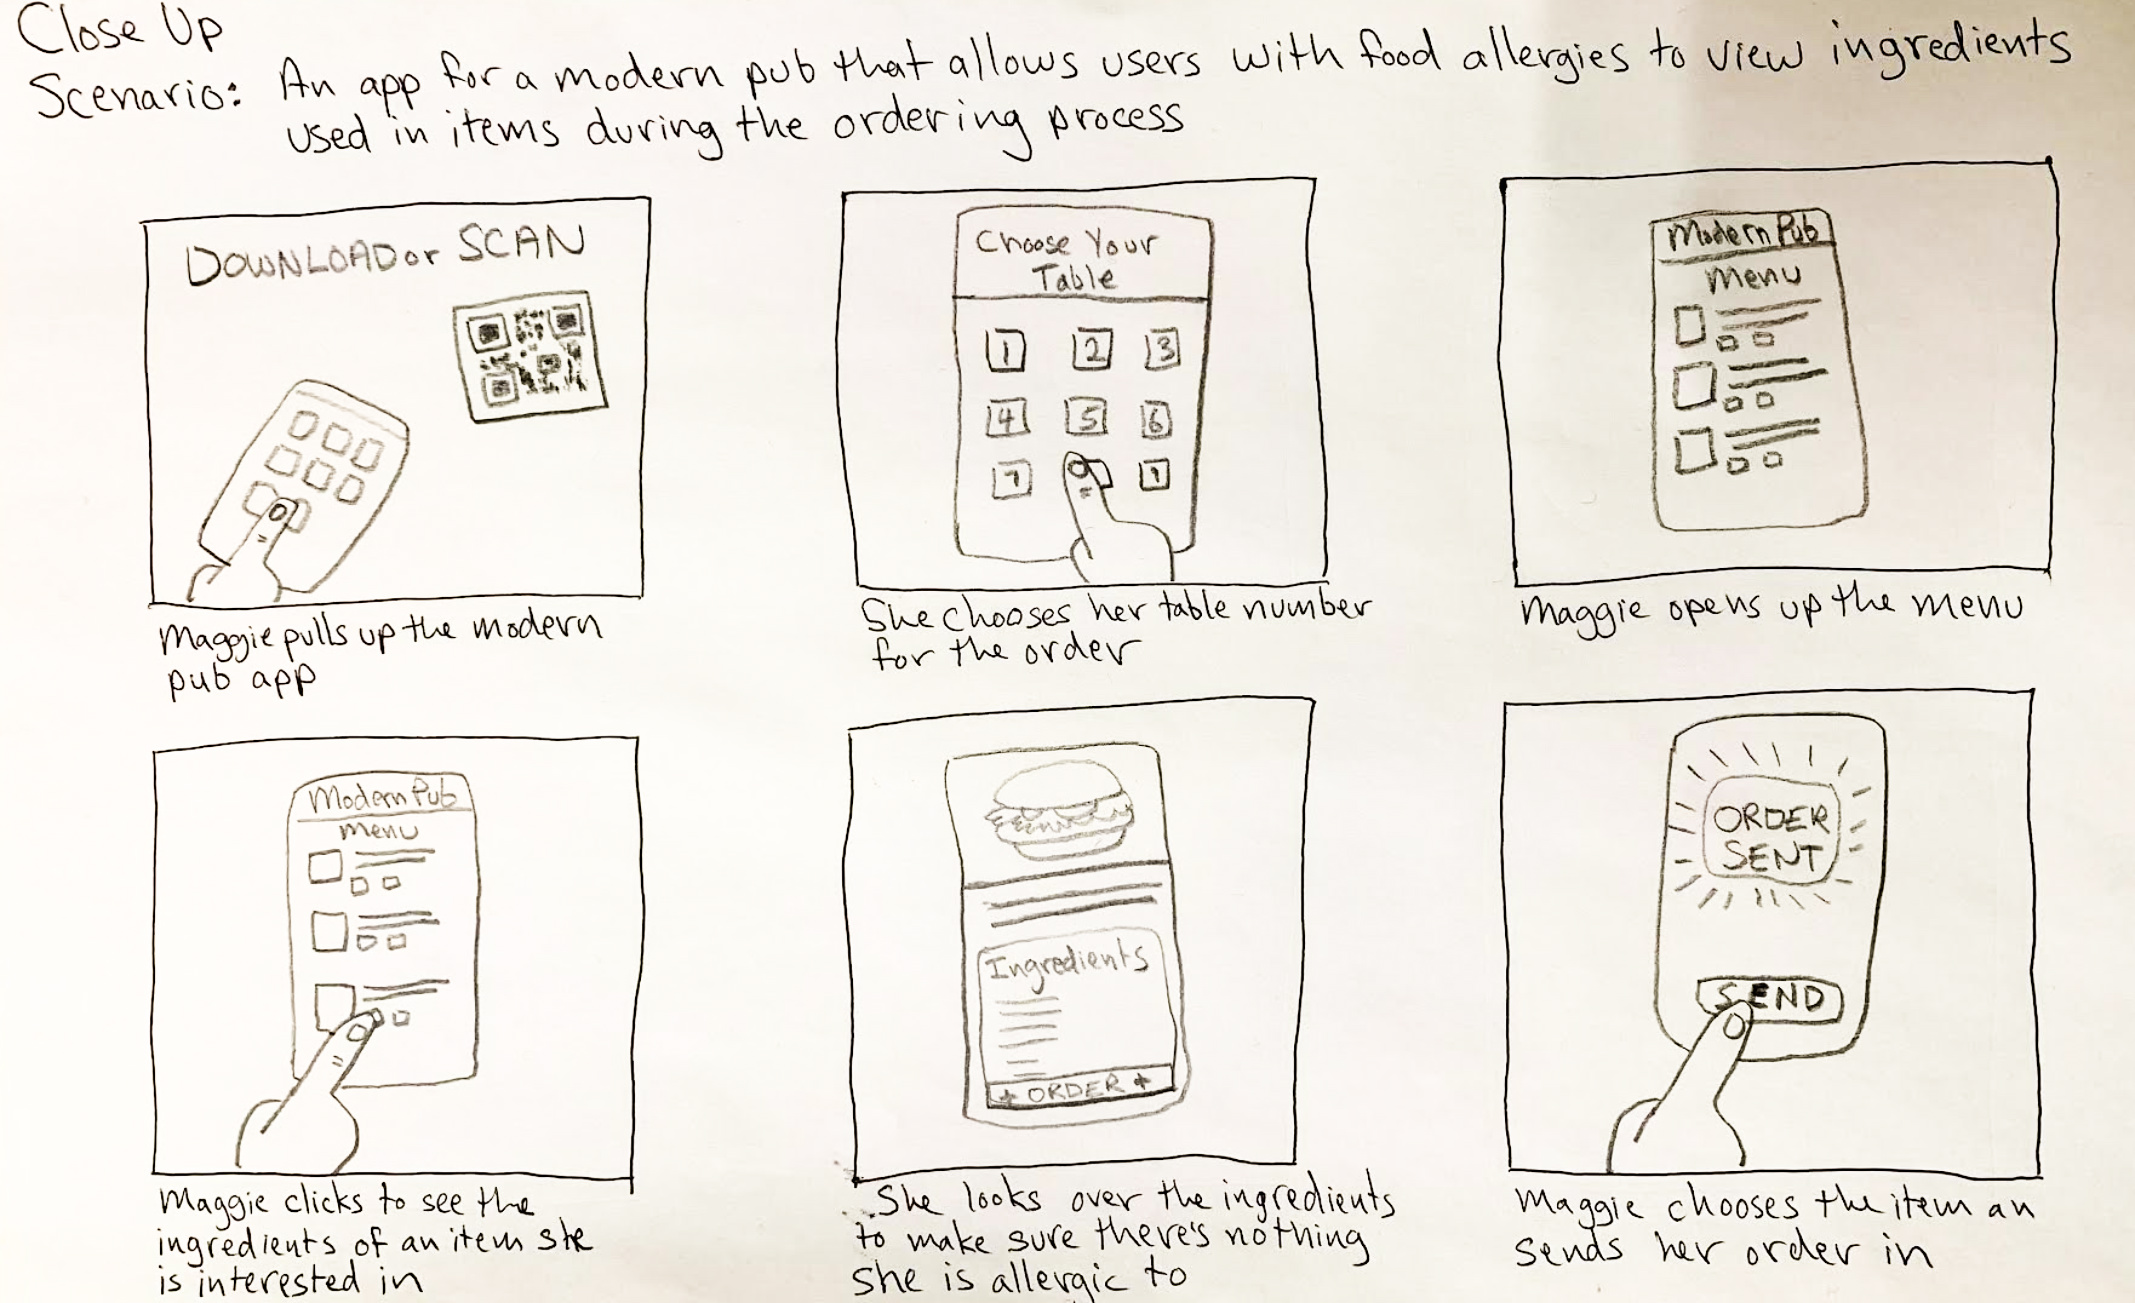 Close Up
Scenario: An app for a modern pub that allows users with food allergies to view ingredients
used in items during the ordering process
DOWNLOAD or SCAN
Maggie pulls up the modern
pub app
Choose Your
Table
1 2 3
4 5 6
7
She chooses her table number
for the order
Modern Pub
Menu
Maggie opens up the menu
Modern Pub
Menu
Maggie clicks to see the
ingredients of an item she
is interested in
Ingredients
+ ORDER +
She looks over the ingredients
to make sure there's nothing
she is allergic to
ORDER
SENT
SEND
Maggie chooses the item an
sends her order in